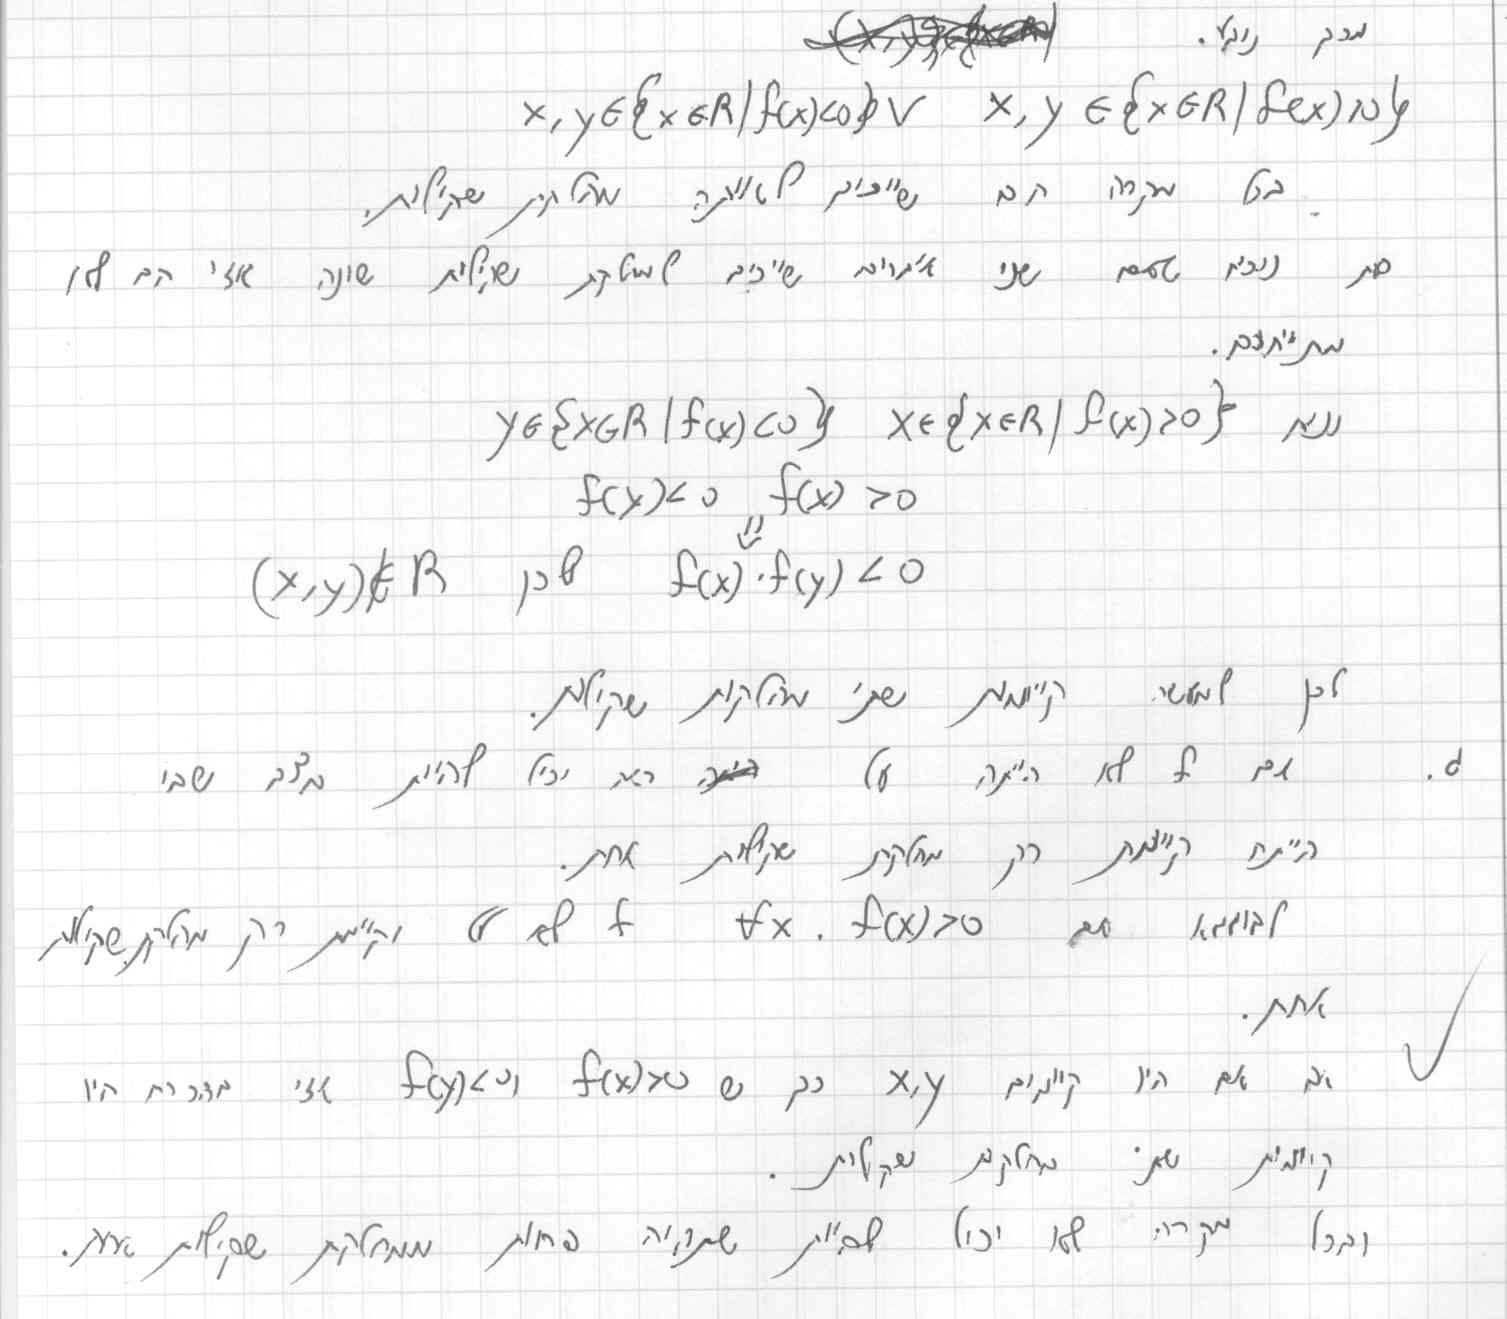 מכך נובע.
x, y ∈ {x ∈ R | f(x)<0} ∨ x, y ∈ {x ∈ R | f(x)>0}
בכל מקרה הם שייכים לאותה מחלקת שקילות.
נוכיח שאם שני איברים שייכים למחלקת שקילות שונה אזי הם לא
מתייחסים.
נניח x ∈ {x ∈ R | f(x)>0} y ∈ {x ∈ R | f(x)<0}
f(y)<0 f(x)>0
⇓
f(x)·f(y)<0 לכן (x,y)∉R
לכן למעשה קיימות שתי מחלקות שקילות.
ג. אם f לא הייתה על היה יכול להיות מצב שבו
הייתה קיימת רק מחלקת שקילות אחת.
לדוגמא אם ∀x. f(x)>0 f לא על וקיימת רק מחלקת שקילות
אחת.
אם היו קיימים x,y כך ש f(x)>0 ו f(y)<0 אזי בהכרח היו
קיימות שתי מחלקות שקילות.
ובכל מקרה לא יכול להיות שתהיה פחות ממחלקת שקילות אחת.